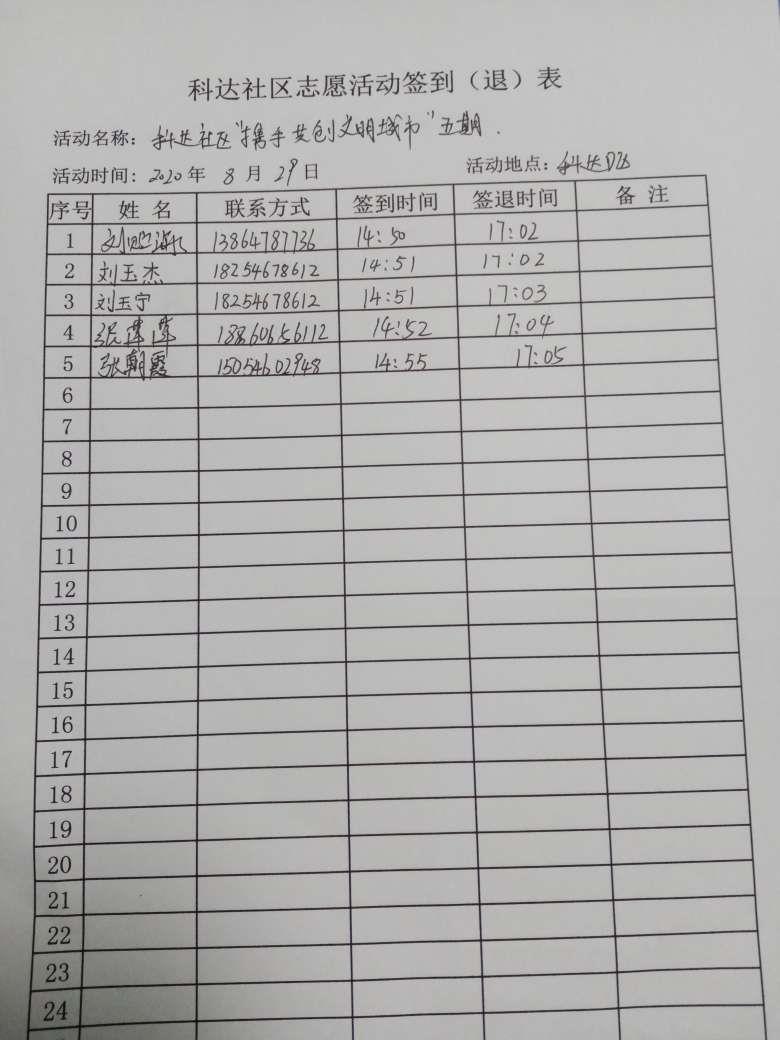 科达社区志愿活动签到（退）表
活动名称：科达社区"携手共创文明城市"五期.
活动时间：2020年 8 月 29 日 活动地点：科达D区
序号 姓 名 联系方式 签到时间 签退时间 备 注
1 刘 13864787736 14:50 17:02
2 刘玉杰 18254678612 14:51 17:02
3 刘玉宁 18254678612 14:51 17:03
4 张 18860656112 14:52 17:04
5 张朝霞 15054602948 14:55 17:05
6
7
8
9
10
11
12
13
14
15
16
17
18
19
20
21
22
23
24